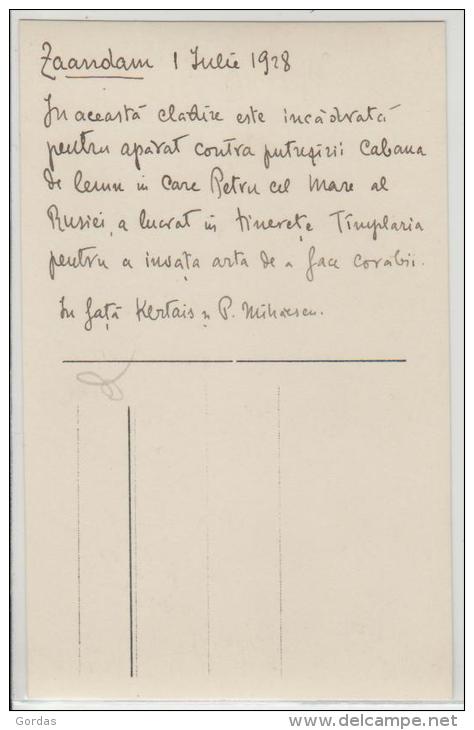 Zaandam 1 Iulie 1928
In această clădire este incadrată
pentru apărat contra putrezirii Cabana
de lemn in care Petru cel Mare al
Rusiei, a lucrat in tinerețe Timplaria
pentru a invața arta de a face corăbii.
In față Kertais și P. Mihaescu.
Gordas
www.delcampe.net